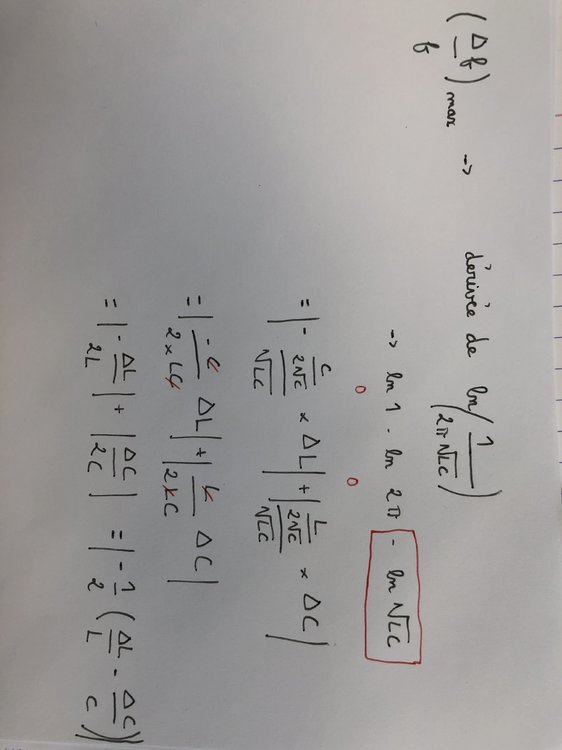 (Δf/f) max -> dérivée de ln(1/(2π√LC))
-> ln 1 - ln 2π - ln √LC
0 0
= |- (C/(2√C))/√LC × ΔL| + |(L/(2√C))/√LC × ΔC|
= |- C/(2×LC) ΔL| + |L/(2LC) ΔC|
= |- ΔL/2L| + |ΔC/2C| = |- 1/2 (ΔL/L - ΔC/C)|